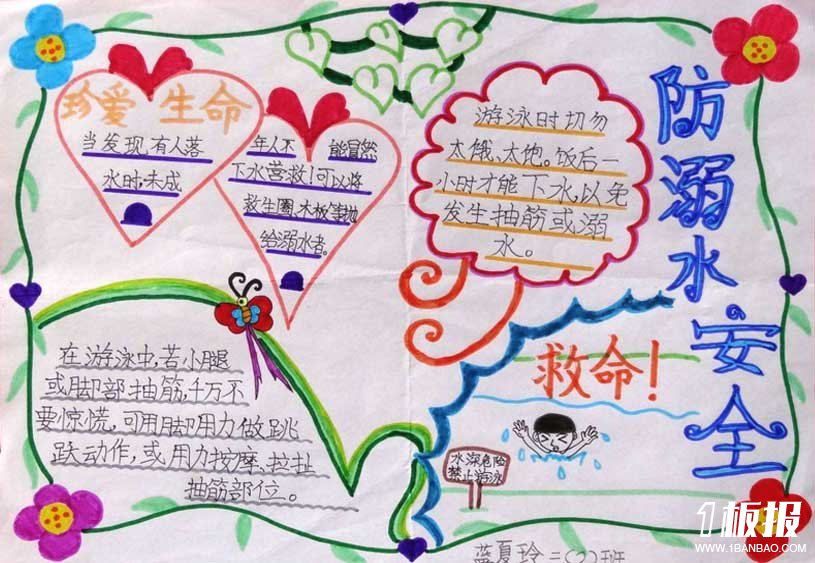 防溺水安全
珍爱生命
当发现有人落
水时,未成
年人不能冒然
下水营救!可以将
救生圈、木板等抛
给溺水者。
游泳时切勿
太饿、太饱。饭后一
小时才能下水,以免
发生抽筋或溺
水。
在游泳中,若小腿
或脚部抽筋,千万不
要惊慌,可用脚用力做跳
跃动作,或用力按摩、拉扯
抽筋部位。
救命!
水深危险
禁止游泳
蓝夏玲 二(2)班
1板报
WWW.1BANBAO.COM